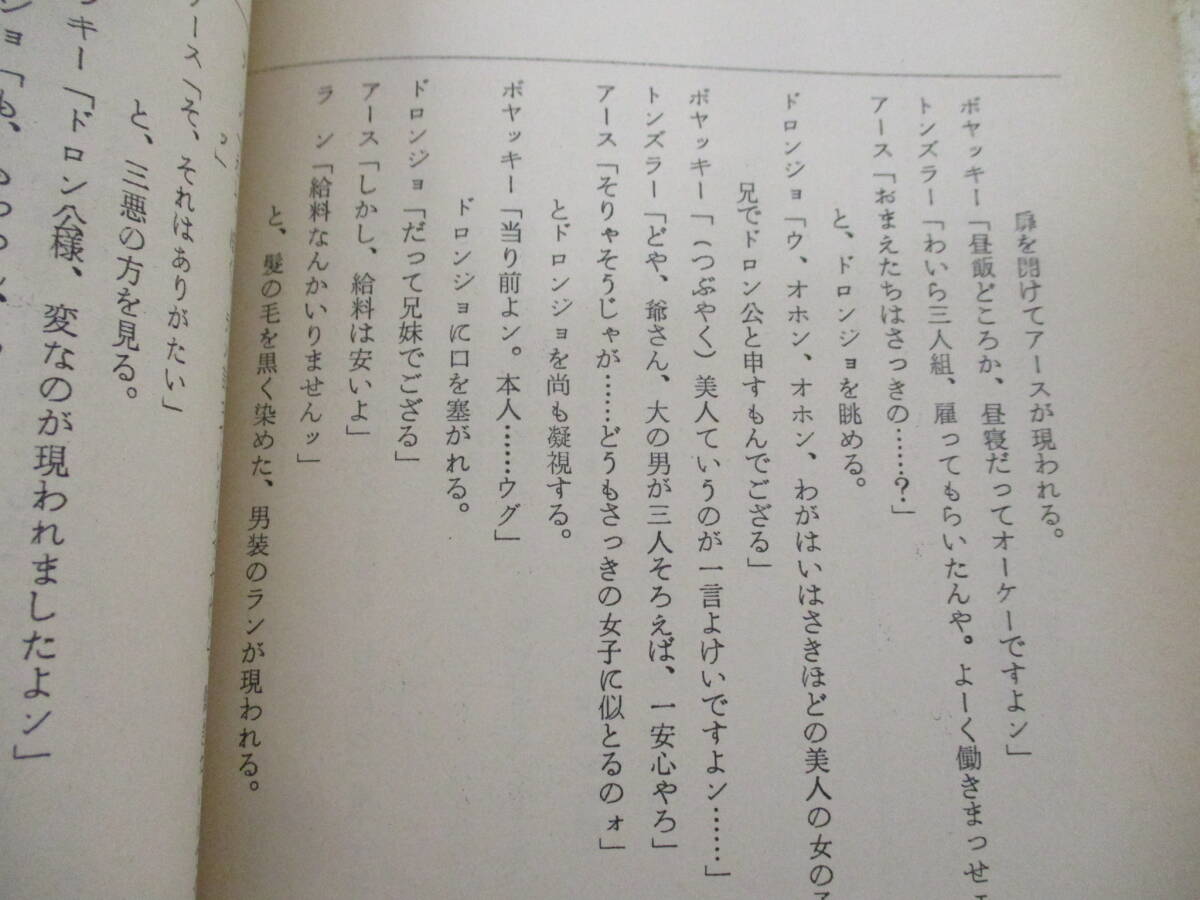 扉を開けてアースが現われる。
ボヤッキー「昼飯どころか、昼寝だってオーケーですよン」
トンズラー「わいら三人組、雇ってもらいたんや。よーく働きまっせ
アース「おまえたちはさっきの……?」
と、ドロンジョを眺める。
ドロンジョ「ウ、オホン、オホン、わがはいはさきほどの美人の女の子
兄でドロン公と申すもんでござる」
ボヤッキー「(つぶやく)美人ていうのが一言よけいですよン……」
トンズラー「どや、爺さん、大の男が三人そろえば、一安心やろ」
アース「そりゃそうじゃが……どうもさっきの女子に似とるのォ」
とドロンジョを尚も凝視する。
ボヤッキー「当り前よン。本人……ウグ」
ドロンジョに口を塞がれる。
ドロンジョ「だって兄妹でござる」
アース「しかし、給料は安いよ」
ラン「給料なんかいりませんッ」
と、髪の毛を黒く染めた、男装のランが現われる。
ース「そ、それはありがたい」
と、三悪の方を見る。
ッキー「ドロン公様、変なのが現われましたよン」
ンジョ「も、